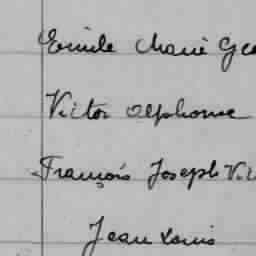 Emile Marie Geo
Victor Alphonse
François Joseph Vi
Jean Louis